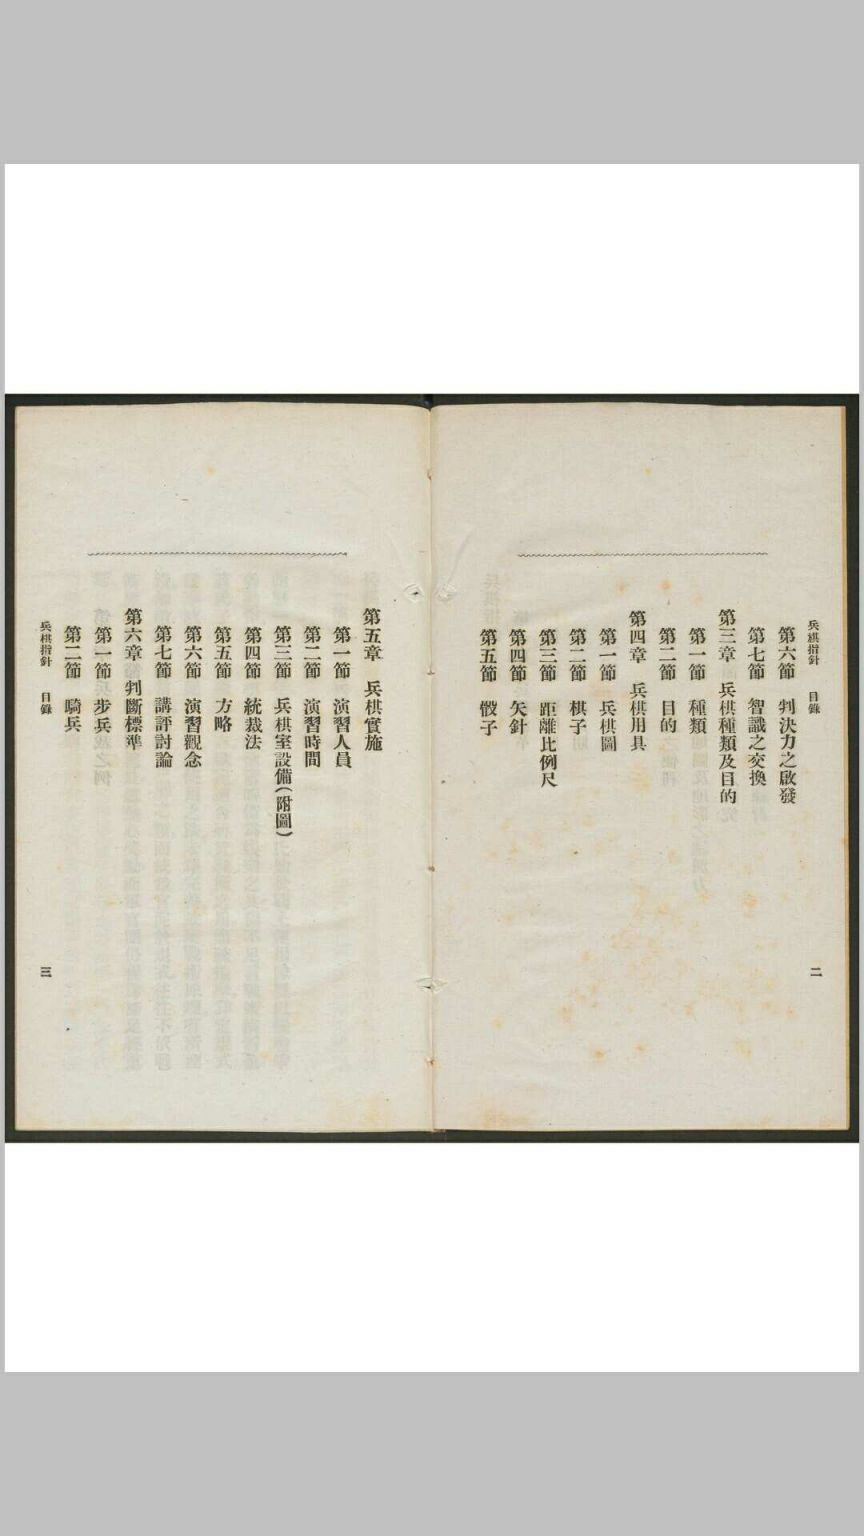 兵棋指針 目錄
第六節 判決力之啟發
第七節 智識之交換
第三章 兵棋種類及目的
第一節 種類
第二節 目的
第四章 兵棋用具
第一節 兵棋圖
第二節 棋子
第三節 距離比例尺
第四節 矢針
第五節 骰子
二
第五章 兵棋實施
第一節 演習人員
第二節 演習時間
第三節 兵棋室設備(附圖)
第四節 統裁法
第五節 方略
第六節 演習觀念
第七節 講評討論
第六章 判斷標準
第一節 步兵
第二節 騎兵
兵棋指針 目錄
三